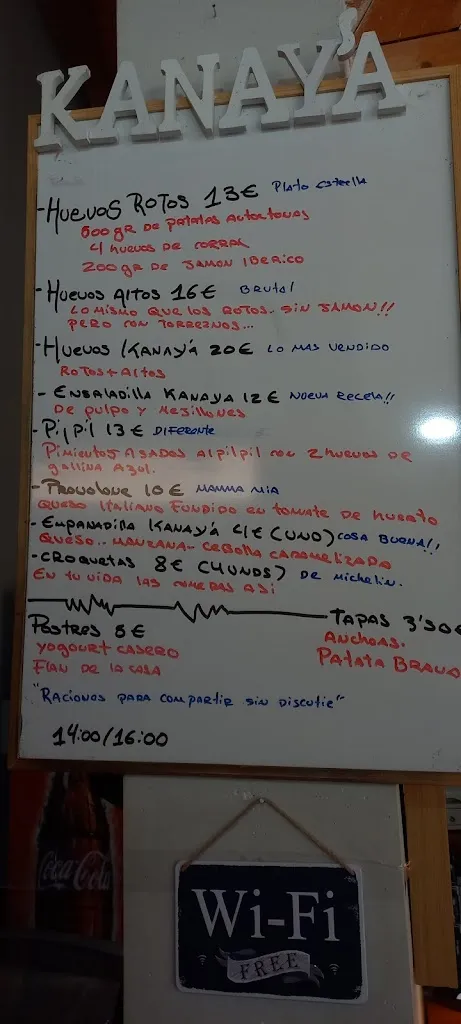 KANAY'S A
-HUEVOS ROTOS 13€ Plato estrella
600 gr DE PATATAS AUTOCTONAS
4 HUEVOS DE CORRAL
200 gr DE JAMON IBERICO
-HUEVOS AlTOS 16€ BRUTAl
LO MISMO QUE LOS ROTOS. SIN JAMON!!
PERO CON TORREZNOS...
-HUEVOS KANAYÁ 20€ LO MAS VENDIDO
ROTOS+AltOS
-ENSALADILLA KANAYA 12€ NUEVA RECETA!!
DE PULPO Y MEJILLONES
-PilPil 13€ DIFERENTE
PIMIENTOS ASADOS Al pilpil CON 2 HUEVOS DE
gAllINA AZUL.
-PROVOLONE 10€ MAMMA MIA
QUESO ITALIANO FUNDIDO EN TOMATE DE HUERTO
-EMPANADILLA KANAYÁ 4€ (UNO) COSA BUENA!!
QUESO... MANZANA - CEBOLLA CARAMELIZADA
-CROQUETAS 8€ (4UNDS) DE Michelin.
EN TU VIDA LAS COMERAS ASI
TAPAS 3'50€
ANCHOAS.
PATATA BRAVA
POSTRES 5€
YOGOURT CASERO
FlAN DE LA CASA
"RACIONES PARA COMPARTIR SIN DISCUTIR"
14:00/16:00
Coca-Cola
Wi-Fi
FREE